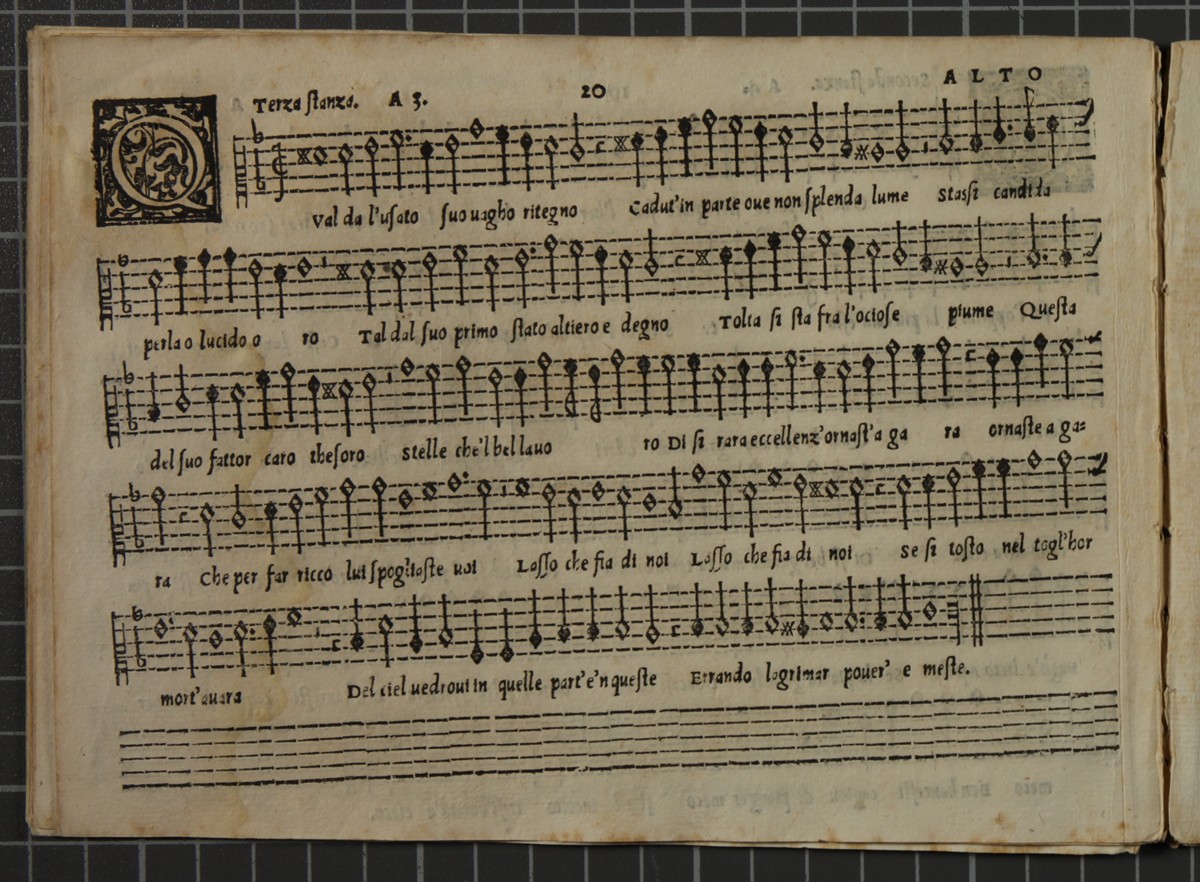 Terza stanza. A 3. 20 ALTO
Q Val da l'usato suo uagho ritegno Cadut'in parte oue non splenda lume Stassi candida
perla o lucido o ro Tal dal suo primo stato altiero e degno Tolta si sta fra l'ociose piume Questa
del suo fattor caro thesoro Stelle che'l bel lauo ro Di si rara eccellenz'ornast'a ga ra ornaste a ga=
ra Che per far ricco lui spogliaste uoi Lasso che fia di noi Lasso che fia di noi Se si tosto nel togl'hor
mort'auara Del ciel uedroui in quelle part'e'n queste Errando lagrimar pouer' e meste.